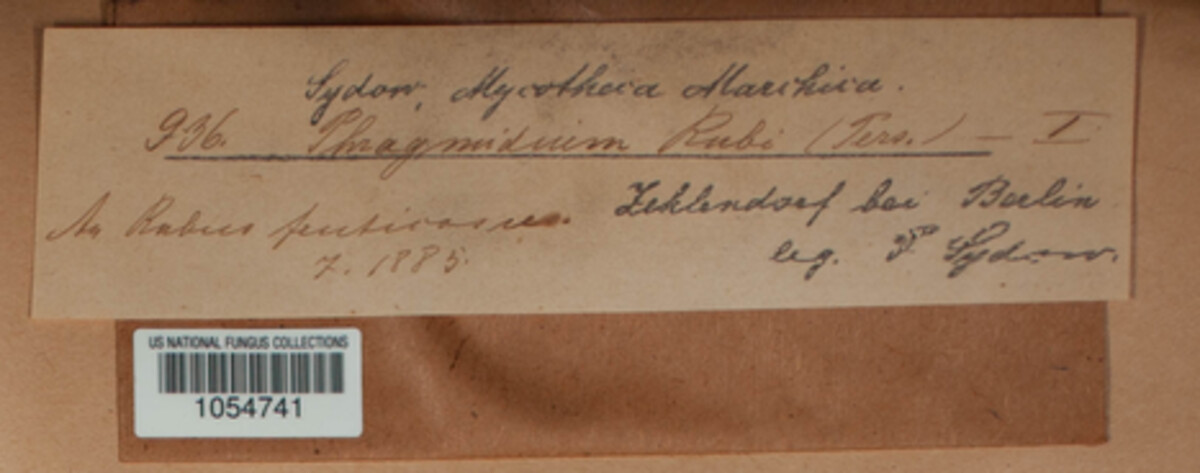 Sydow, Mycotheca Marchica.
936. Phragmidium Rubi (Pers.) — I
An Rubus fruticosus. Zehlendorf bei Berlin
7. 1885. leg. P Sydow.
US NATIONAL FUNGUS COLLECTIONS
1054741